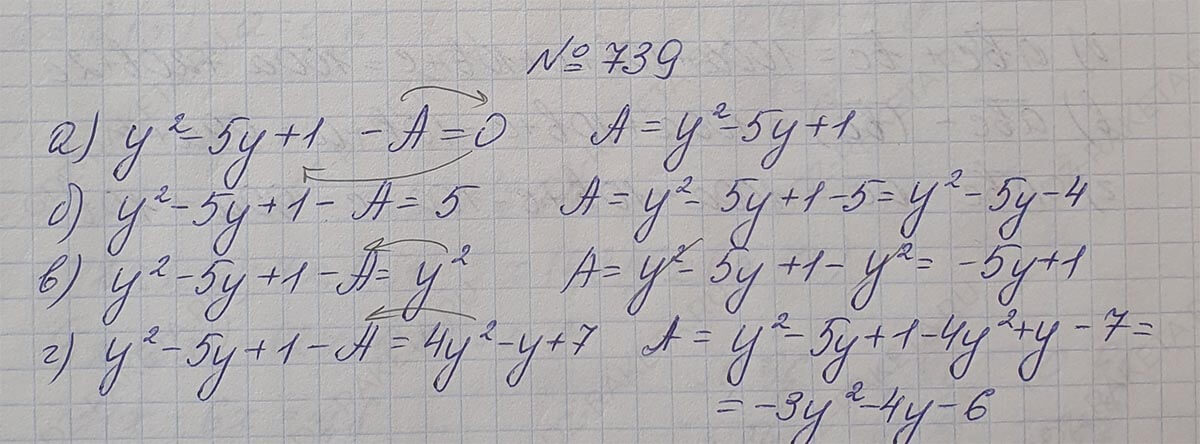 № 739
а) y² - 5y + 1 - A = 0 A = y² - 5y + 1
б) y² - 5y + 1 - A = 5 A = y² - 5y + 1 - 5 = y² - 5y - 4
в) y² - 5y + 1 - A = y² A = y² - 5y + 1 - y² = -5y + 1
г) y² - 5y + 1 - A = 4y² - y + 7 A = y² - 5y + 1 - 4y² + y - 7 =
= -3y² - 4y - 6